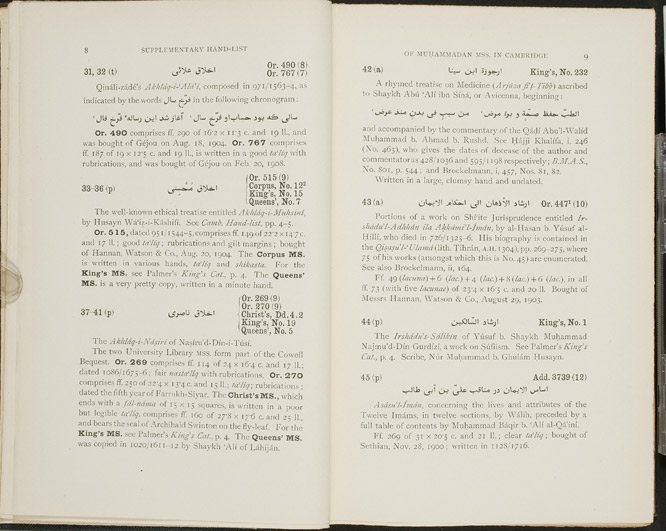 8 SUPPLEMENTARY HAND-LIST
31, 32 (t) اخلاق علائی Or. 490 (8)
Or. 767 (7)
Qináli-záde's Akhláq-i-'Alá'í, composed in 971/1563-4, as
indicated by the words فرّخ سال in the following chronogram:
سانی که بود حساب او فرّخ سال آغاز شد این رساله فرّخ فال
Or. 490 comprises ff. 290 of 16·2 × 11·3 c. and 19 ll., and
was bought of Géjou on Aug. 18, 1904. Or. 767 comprises
ff. 187 of 19 × 12·5 c. and 19 ll., is written in a good ta'líq with
rubrications, and was bought of Géjou on Feb. 20, 1908.
33–36 (p) اخلاق مُحسنی Or. 515 (9)
Corpus, No. 12²
King's, No. 15
Queens', No. 7
The well-known ethical treatise entitled Akhláq-i-Muhsiní,
by Husayn Wá'iz-i-Káshifí. See Camb. Hand-list, pp. 4–5.
Or. 515, dated 951/1544–5, comprises ff. 149 of 22·2 × 14·7 c.
and 17 ll.; good ta'líq; rubrications and gilt margins; bought
of Hannan, Watson & Co., Aug. 20, 1904. The Corpus MS.
is written in various hands, ta'líq and shikasta. For the
King's MS. see Palmer's King's Cat., p. 4. The Queens'
MS. is a very pretty copy, written in a minute hand.
37–41 (p) اخلاق ناصری Or. 269 (9)
Or. 270 (9)
Christ's, Dd. 4. 2
King's, No. 19
Queens', No. 5
The Akhláq-i-Násirí of Nasíru'd-Dín-i-Túsí.
The two University Library MSS. form part of the Cowell
Bequest. Or. 269 comprises ff. 114 of 24 × 16·4 c. and 17 ll.;
dated 1086/1675–6; fair nasta'líq with rubrications. Or. 270
comprises ff. 250 of 22·4 × 13·4 c. and 15 ll.; ta'líq; rubrications;
dated the fifth year of Farrokh-Siyar. The Christ's MS., which
ends with a fál-náma of 15 × 15 squares, is written in a poor
but legible ta'líq, comprises ff. 160 of 27·8 × 17·6 c. and 25 ll.,
and bears the seal of Archibald Swinton on the fly-leaf. For the
King's MS. see Palmer's King's Cat., p. 4. The Queens' MS.
was copied in 1020/1611–12 by Shaykh 'Alí of Láhiján.
OF MUHAMMADAN MSS. IN CAMBRIDGE 9
42 (a) ارجوزة ابن سينا King's, No. 232
A rhymed treatise on Medicine (Arjúza fi't-Tibb) ascribed
to Shaykh Abú 'Alí ibn Síná, or Avicenna, beginning:
الطبّ حفظ صحّة و برؤ مرض من سبب فى بدن منذ عرض
and accompanied by the commentary of the Qádí Abu'l-Walíd
Muhammad b. Ahmad b. Rushd. See Hájji Khalífa, i, 246
(No. 463), who gives the dates of decease of the author and
commentator as 428/1036 and 595/1198 respectively; B.M.A.S.,
No. 801, p. 544; and Brockelmann, i, 457, Nos. 81, 82.
Written in a large, clumsy hand and undated.
43 (a) ارشاد الأذهان الى احكام الايمان Or. 447¹ (10)
Portions of a work on Shí'ite Jurisprudence entitled Ir-
shádu'l-Adhhán ila Ahkámi'l-Ímán, by al-Hasan b. Yúsuf al-
Hillí, who died in 726/1325–6. His biography is contained in
the Qisasu'l-'Ulamá (lith. Tihrán, A.H. 1304), pp. 269–275, where
75 of his works (amongst which this is No. 45) are enumerated.
See also Brockelmann, ii, 164.
Ff. 49 (lacuna) + 6 (lac.) + 4 (lac.) + 8 (lac.) + 6 (lac.), in all
ff. 73 (with five lacunae) of 23·4 × 16·5 c. and 20 ll. Bought of
Messrs Hannan, Watson & Co., August 29, 1903.
44 (p) ارشاد السّالكين King's, No. 1
The Irshádu's-Sálikín of Yúsuf b. Shaykh Muhammad
Najmu'd-Dín Gurdízí, a work on Súfiism. See Palmer's King's
Cat., p. 4. Scribe, Núr Muhammad b. Ghulám Husayn.
45 (p) Add. 3739 (12)
اساس الايمان در مناقب علىّ بن أبى طالب
Asásu'l-Ímán, concerning the lives and attributes of the
Twelve Imáms, in twelve sections, by Wálih, preceded by a
full table of contents by Muhammad Báqir b. 'Alí al-Qá'iní.
Ff. 269 of 31 × 20·5 c. and 21 ll.; clear ta'líq; bought of
Sethian, Nov. 28, 1900; written in 1128/1716.